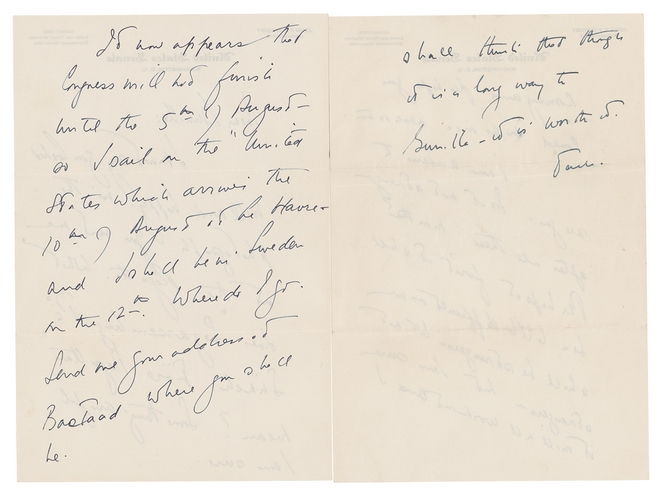 It now appears that
Congress will not finish
until the 5th of August –
so I sail on the "United
States which arrives the
10th of August at Le Havre –
and I shall be in Sweden
on the 12th. Where do I go.
Send me your address at
Bastaad where you shall
be.
shall think that though
it is a long way to
Gunilla – it is worth it.
Jack.